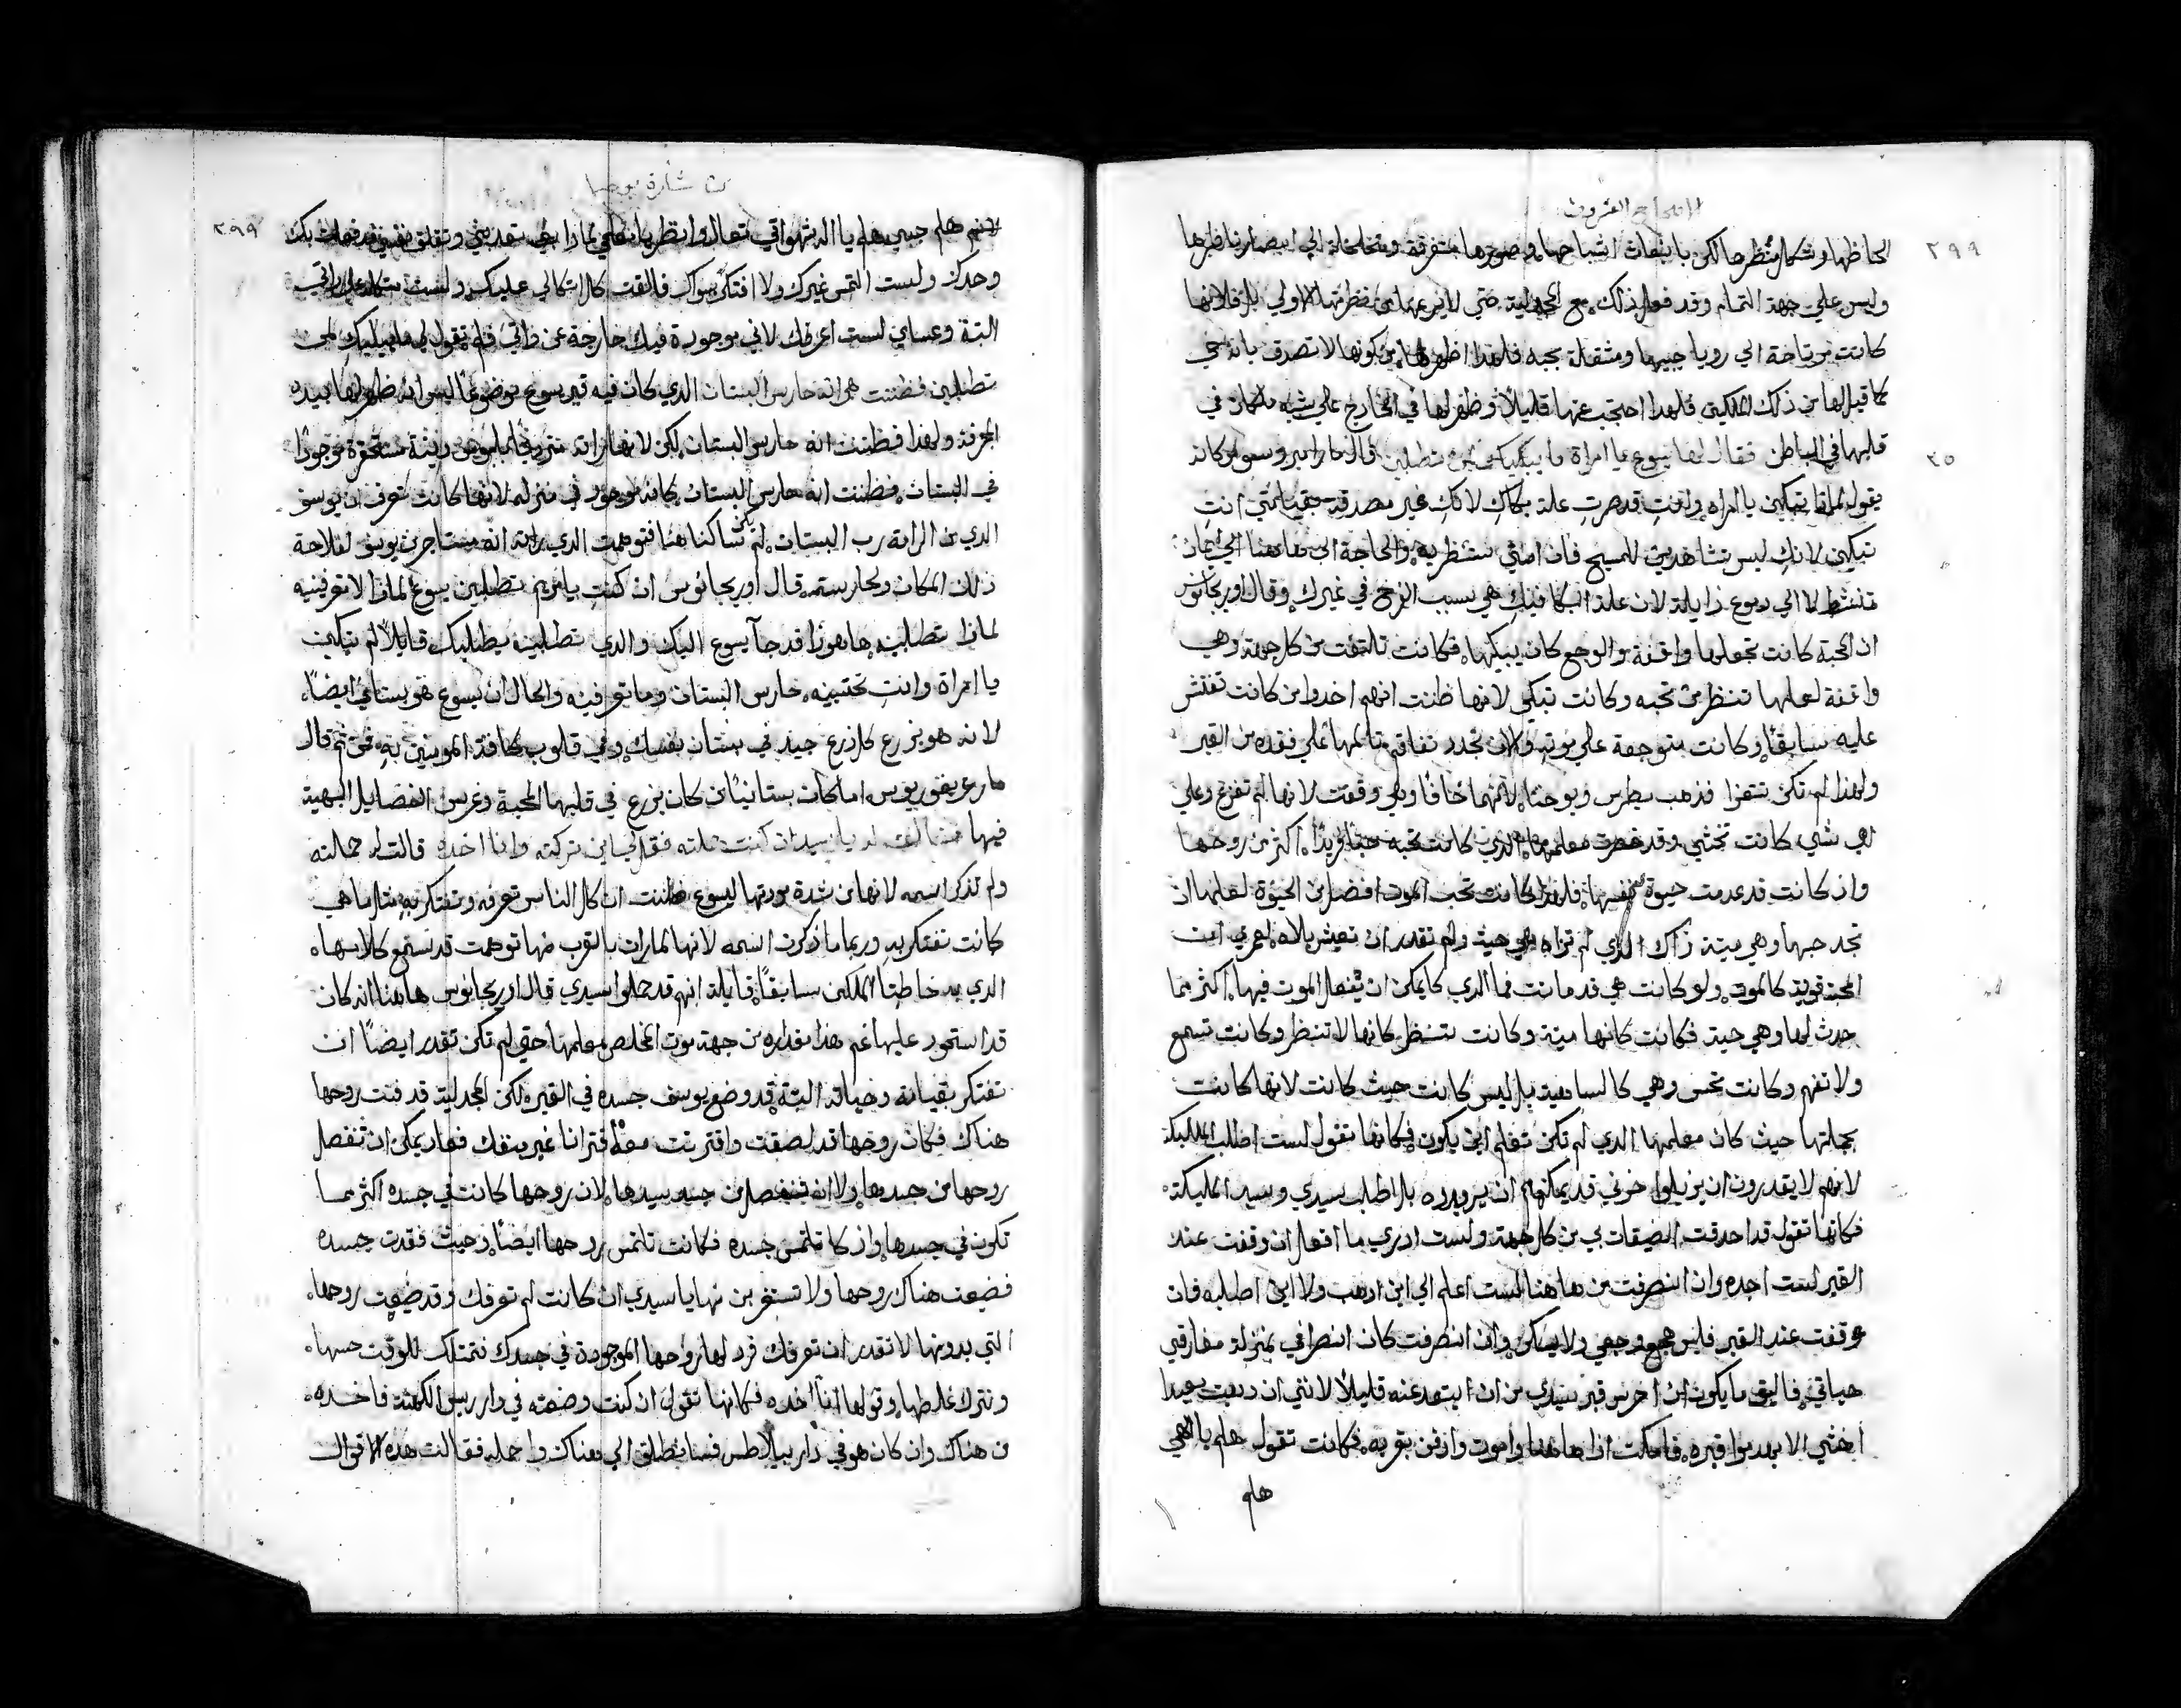 الاصحاح العشرون
٢٩٩
وليس علي جهة التمام وقد فعل ذلك مع المجدلية حتي لا
كانت مرتاحة الي رويا حبيبها ومشغلة بحبه فلهذا اظهر لها من كونها لا تصدق بانه حي
كما قيل لها من ذلك الملاكين فلهذا احتجب عنها قليلاً وظهر لها في الخارج علي شبه ما كان في
قلبها في الباطن فقال لها يسوع يا امراة ما يبكيك من تطلبين قال مارامبروسيوس كانه
٢٥
يقول لماذا تبكين يا امراه وانتِ قد صرتِ علة بكاكِ لانكِ غير مصدقة انتِ
تبكين لانكِ ليس تشاهدين المسيح فان امنتي تنتظريه والحاجة الي ها هنا الي ايمان
تنشط لا الي دموع زايلة لان علة البكا فيكِ هي بسبب الفرح في غيرك وقال اوريجانوس
ان المحبة كانت تجعلها واقفة والوجع كان يبكيها فكانت تلتفت من كل جهة وهي
واقفة لعلها تنظر من تحبه وكانت تبكي لانها ظنت انهم اخدوا من كانت تفتش
عليه سابقاً وكانت متوجعة علي موته والان تجدد تفاقم تالمها علي فقده من القبر
ولهذا لم تكن تتعزا فذهب بطرس ويوحنا لانهما خافا وهي وقفت لانها لم تفزع وعلي
اي شي كانت تخشي وقد خسرت معلمها الذي كانت تحبه حباً فريداً اكثر من روحها
واذ كانت قد عدمت حيوة نفسها فلهذا كانت تحب الموت افضل من الحيوة لعلها ان
تجد حبها وهي ميتة ذاك الذي لم تراه وهي حية ولم تقدر ان تعيش بلاه لعمري ان
المحبة قوية كالموت ولو كانت هي قد ماتت فما الذي كا يمكن ان يفعل الموت فيها اكثر مما
حدث لها وهي حية فكانت كانها ميتة وكانت تنظر كانها لا تنظر وكانت تسمع
ولا تفهم وكانت تحس وهي كالساهية بل ليس كانت حيث كانت لانها كانت
بجملتها حيث كان معلمها الذي لم تكن تعلم اين يكون فكانها تقول لست اطلب المليكة
لانهم لا يقدرون ان يزيلوا حزني قد يمكنهم ان يزيدوه بل اطلب سيدي وسيد المليكة
فكانها تقول قد احدقت الضيقات بي من كل جهة ولست ادري ما افعل ان وقفت عند
القبر لست اجده وان انصرفت من ها هنا لست اعلم الي اين اذهب ولا اين اطلبه فان
وقفت عند القبر فليس وجعي ولا يسكن وان انصرفت كان انصرافي بمنزلة مفارقتي
حياتي فاليق ما يكون ان احرس قبر سيدي من ان ابتعد عنه قليلاً لانني ان ذهبت بعيدا
اخشي الا يهدموا قبره فامكث اذا ها هنا واموت وادفن بقربه فكانت تقول هلم يا الهي
هلم
بشارة يوحنا
٢٩٩
وحدك ولست التمس غيرك ولا افتكر سواك فالقت كل اتكالي عليك ولست
البتة وعساي لست اعرفك لاني موجودة فيك خارجة عن ذاتي فلم تقول لي ما يبكيك لمن
تطلبين فظننت هي انه حارس البستان الذي كان فيه قبر يسوع موضوعاً ليس انه ظهر لها بيده
المجرفة ولهذا فظنت انه حارس البستان لكن لانها راته موجوداً
في البستان فظننت انه حارس البستان كانه موجود في منزله لانها كانت تعرف ان يوسف
الذي من الرامة رب البستان لم يكن ساكنا هنا فتوهمت الذي راته انه مستاجر من يوسف لفلاحة
ذلك المكان ولحارسته قال اوريجانوس ان كنتِ يا مريم تطلبين يسوع لماذا لا تعرفينه
لماذا تطلبينه ها هوذا قد جا يسوع اليك والذي تطلبينه يطلبك قايلاً لم تبكين
يا امراة وانتِ تحسبينه حارس البستان وما تعرفينه والحال ان يسوع هو بستاني ايضاً
لانه هو يزرع كل زرع جيد في بستان نفسك وفي قلوب كافة المومنين به ثم قال
مار غريغوريوس اما كان بستانياً من كان يزرع في قلبها المحبة وغرس الفضايل البهية
فيها فقالت له يا سيد ان كنت حملته فقل لي اين تركته وانا اخده قالت له حملته
ولم تذكر اسمه لانها من شدة مودتها ليسوع ظننت ان كل الناس تعرفه وتفتكر به مثل ما هي
كانت تفتكر به وربما ما ذكرت اسمه لانها لما رات بالقرب منها توهمت قد تسمع كلامها
الذي به خاطبتا الملكين سابقاً قايلة انهم قد حملوا سيدي قال اوريجانوس ها هنا انه كان
قد استحود عليها غم هذا مقداره من جهة موت المخلص معلمها حتي لم تكن تقدر ايضاً ان
تفتكر بقيامته وحياته البتة قد وضع يوسف جسده في القبر لكن المجدلية قد دفنت روحها
هناك فكان روحها قد لصقت واقترنت معه اقترانا غير منفك فصار يمكن ان تنفصل
روحها من جسدها ولا ان تنفصل من جسد سيدها لان روحها كانت في جسده اكثر مما
تكون في جسدها واذ كانت تلتمس جسده فكانت تلتمس روحها ايضاً وحيث فقدت جسده
فضيعت هناك روحها ولا تستغرب منها يا سيدي ان كانت لم تعرفك وقد ضيعت روحها
التي بدونها لا تقدر ان تعرفك فرد لها روحها الموجودة في جسدك فتمتلك للوقت حسها
وتترك غلطها وقولها انا اخده فكانها تقول ان كنت وضعته في دار ريس الكهنة فاخده
من هناك وان كان هو في دار بيلاطس فسانطلق الي هناك واحمله فقالت هذه الاقوال